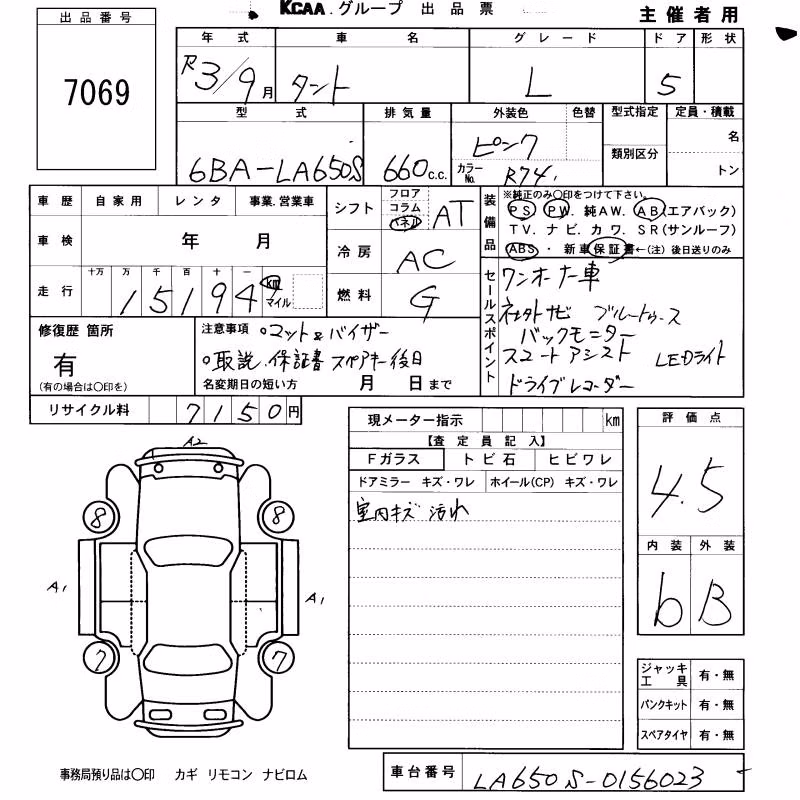 KCAA.グループ 出品票
主催者用
出品番号
7069
年式 車名 グレード ドア 形状
R3/9月 タント L 5
型式 排気量 外装色 色替 型式指定 定員・積載
名
類別区分
トン
6BA-LA650S 660c.c. ピンク カラーNo. R74
車歴 自家用 レンタ 事業.営業車
車検 年 月
走行 十万 万 千 百 十 一
15194 km マイル
シフト フロア コラム パネル AT
冷房 AC
燃料 G
装備品
※純正のみ〇印をつけて下さい。
PS PW. 純AW. AB(エアバック)
TV. ナビ. カワ. SR(サンルーフ)
ABS ・ 新車保証書←(注) 後日送りのみ
セールスポイント
ワンオーナー車
社外ナビ ブルートゥース
バックモニター
スマートアシスト LEDライト
ドライブレコーダー
修復歴 箇所
有
(有の場合は〇印を)
注意事項 ○マット&バイザー
○取説.保証書 スペアキー後日
名変期日の短い方 月 日まで
リサイクル料 7150円
現メーター指示 km
【査定員記入】
Fガラス トビ石 ヒビワレ
ドアミラー キズ・ワレ ホイール(CP) キズ・ワレ
室内キズ 汚れ
評価点
4.5
内装 外装
b B
ジャッキ工具 有・無
パンクキット 有・無
スペアタイヤ 有・無
A2
8 8
A1 A1
7 7
事務局預り品は〇印 カギ リモコン ナビロム
車台番号 LA650S-0156023